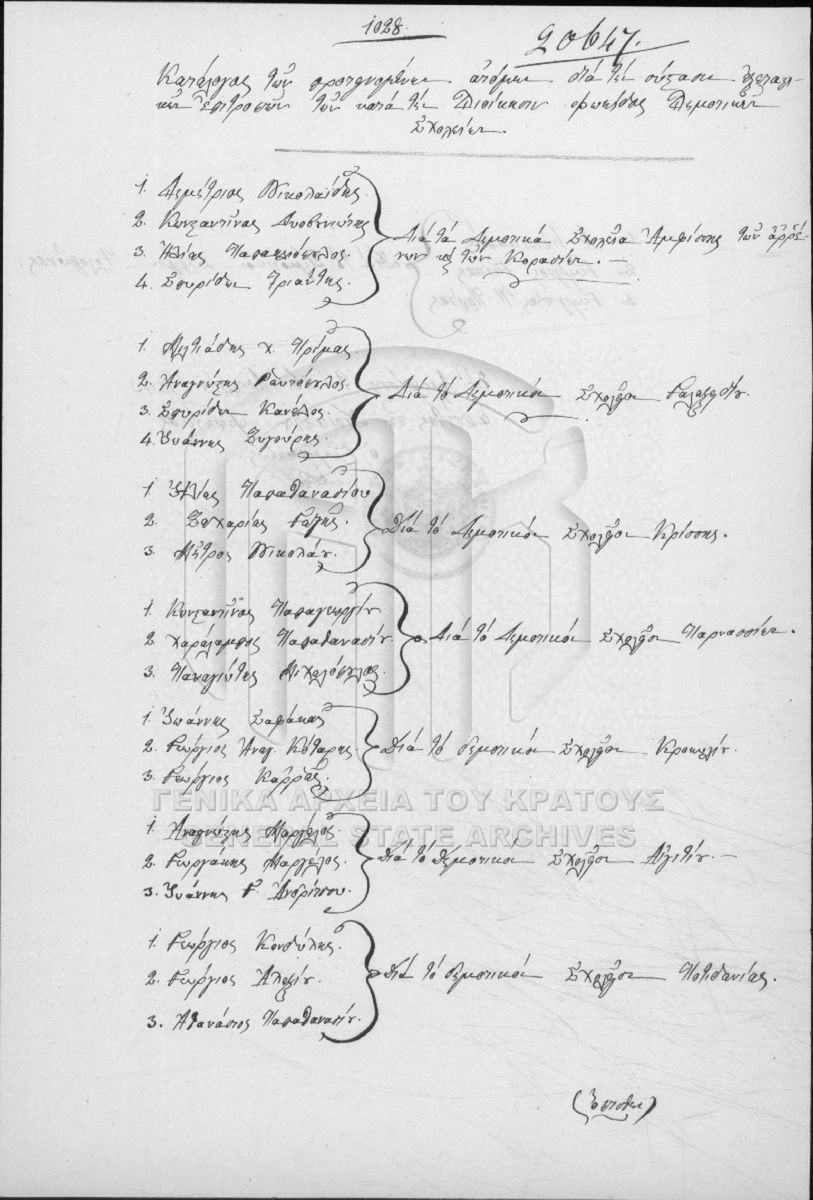 1028.
20647.
Κατάλογος τῶν προτεινομένων ἀτόμων διὰ τὴν σύστασιν ἐξεταστι-
κῶν ἐπιτροπῶν τῶν κατὰ τὴν Διοίκησιν Φωκίδος Δημοτικῶν
Σχολείων.
1. Δημήτριος Νικολαΐδης.
2. Κωνσταντῖνος
3. Ἠλίας
4. Σπυρίδων Τριάντης.
Διὰ τὰ Δημοτικὰ Σχολεῖα Ἀμφίσσης τῶν ἀῤῥέ-
νων καὶ τῶν Κορασίων. —
1. Μιλτιάδης χ
2. Ἀναγνώστης
3. Σπυρίδων Κανέλος.
4. Ἰωάννης Ζυγούρης.
Διὰ τὸ Δημοτικὸν Σχολεῖον Γαλαξειδίου.
1. Ἠλίας Παπαθανασίου
2. Ζαχαρίας
3. Μῆτρος Νικολάου.
Διὰ τὸ Δημοτικὸν Σχολεῖον Κρίσσης.
1. Κωνσταντῖνος Παπαγεωργίου
2. Χαράλαμπος Παπαθανασίου
3. Παναγιώτης Μιχαλόπουλος.
Διὰ τὸ Δημοτικὸν Σχολεῖον Παρνασσίων.
1. Ἰωάννης Σαφάκας
2. Γεώργιος Ἀναγ. Κόταρης.
3. Γεώργιος Καῤῥᾶς.
Διὰ τὸ δημοτικὸν Σχολεῖον Κροκυλίου.
1. Ἀναγνώστης Μαργέλος.
2. Γεωργάκης Μαργέλος.
3. Ἰωάννης Γ. Ἀνδρίτσου.
Διὰ τὸ δημοτικὸν Σχολεῖον Αἰγιτίου. —
1. Γεώργιος Κονδύλης.
2. Γεώργιος Ἀλεξίου.
3. Ἀθανάσιος Παπαθανασίου.
Διὰ τὸ δημοτικὸν Σχολεῖον Ποτιδανίας.
(ὄπισθεν)
ΓΕΝΙΚΑ ΑΡΧΕΙΑ ΤΟΥ ΚΡΑΤΟΥΣ
GENERAL STATE ARCHIVES